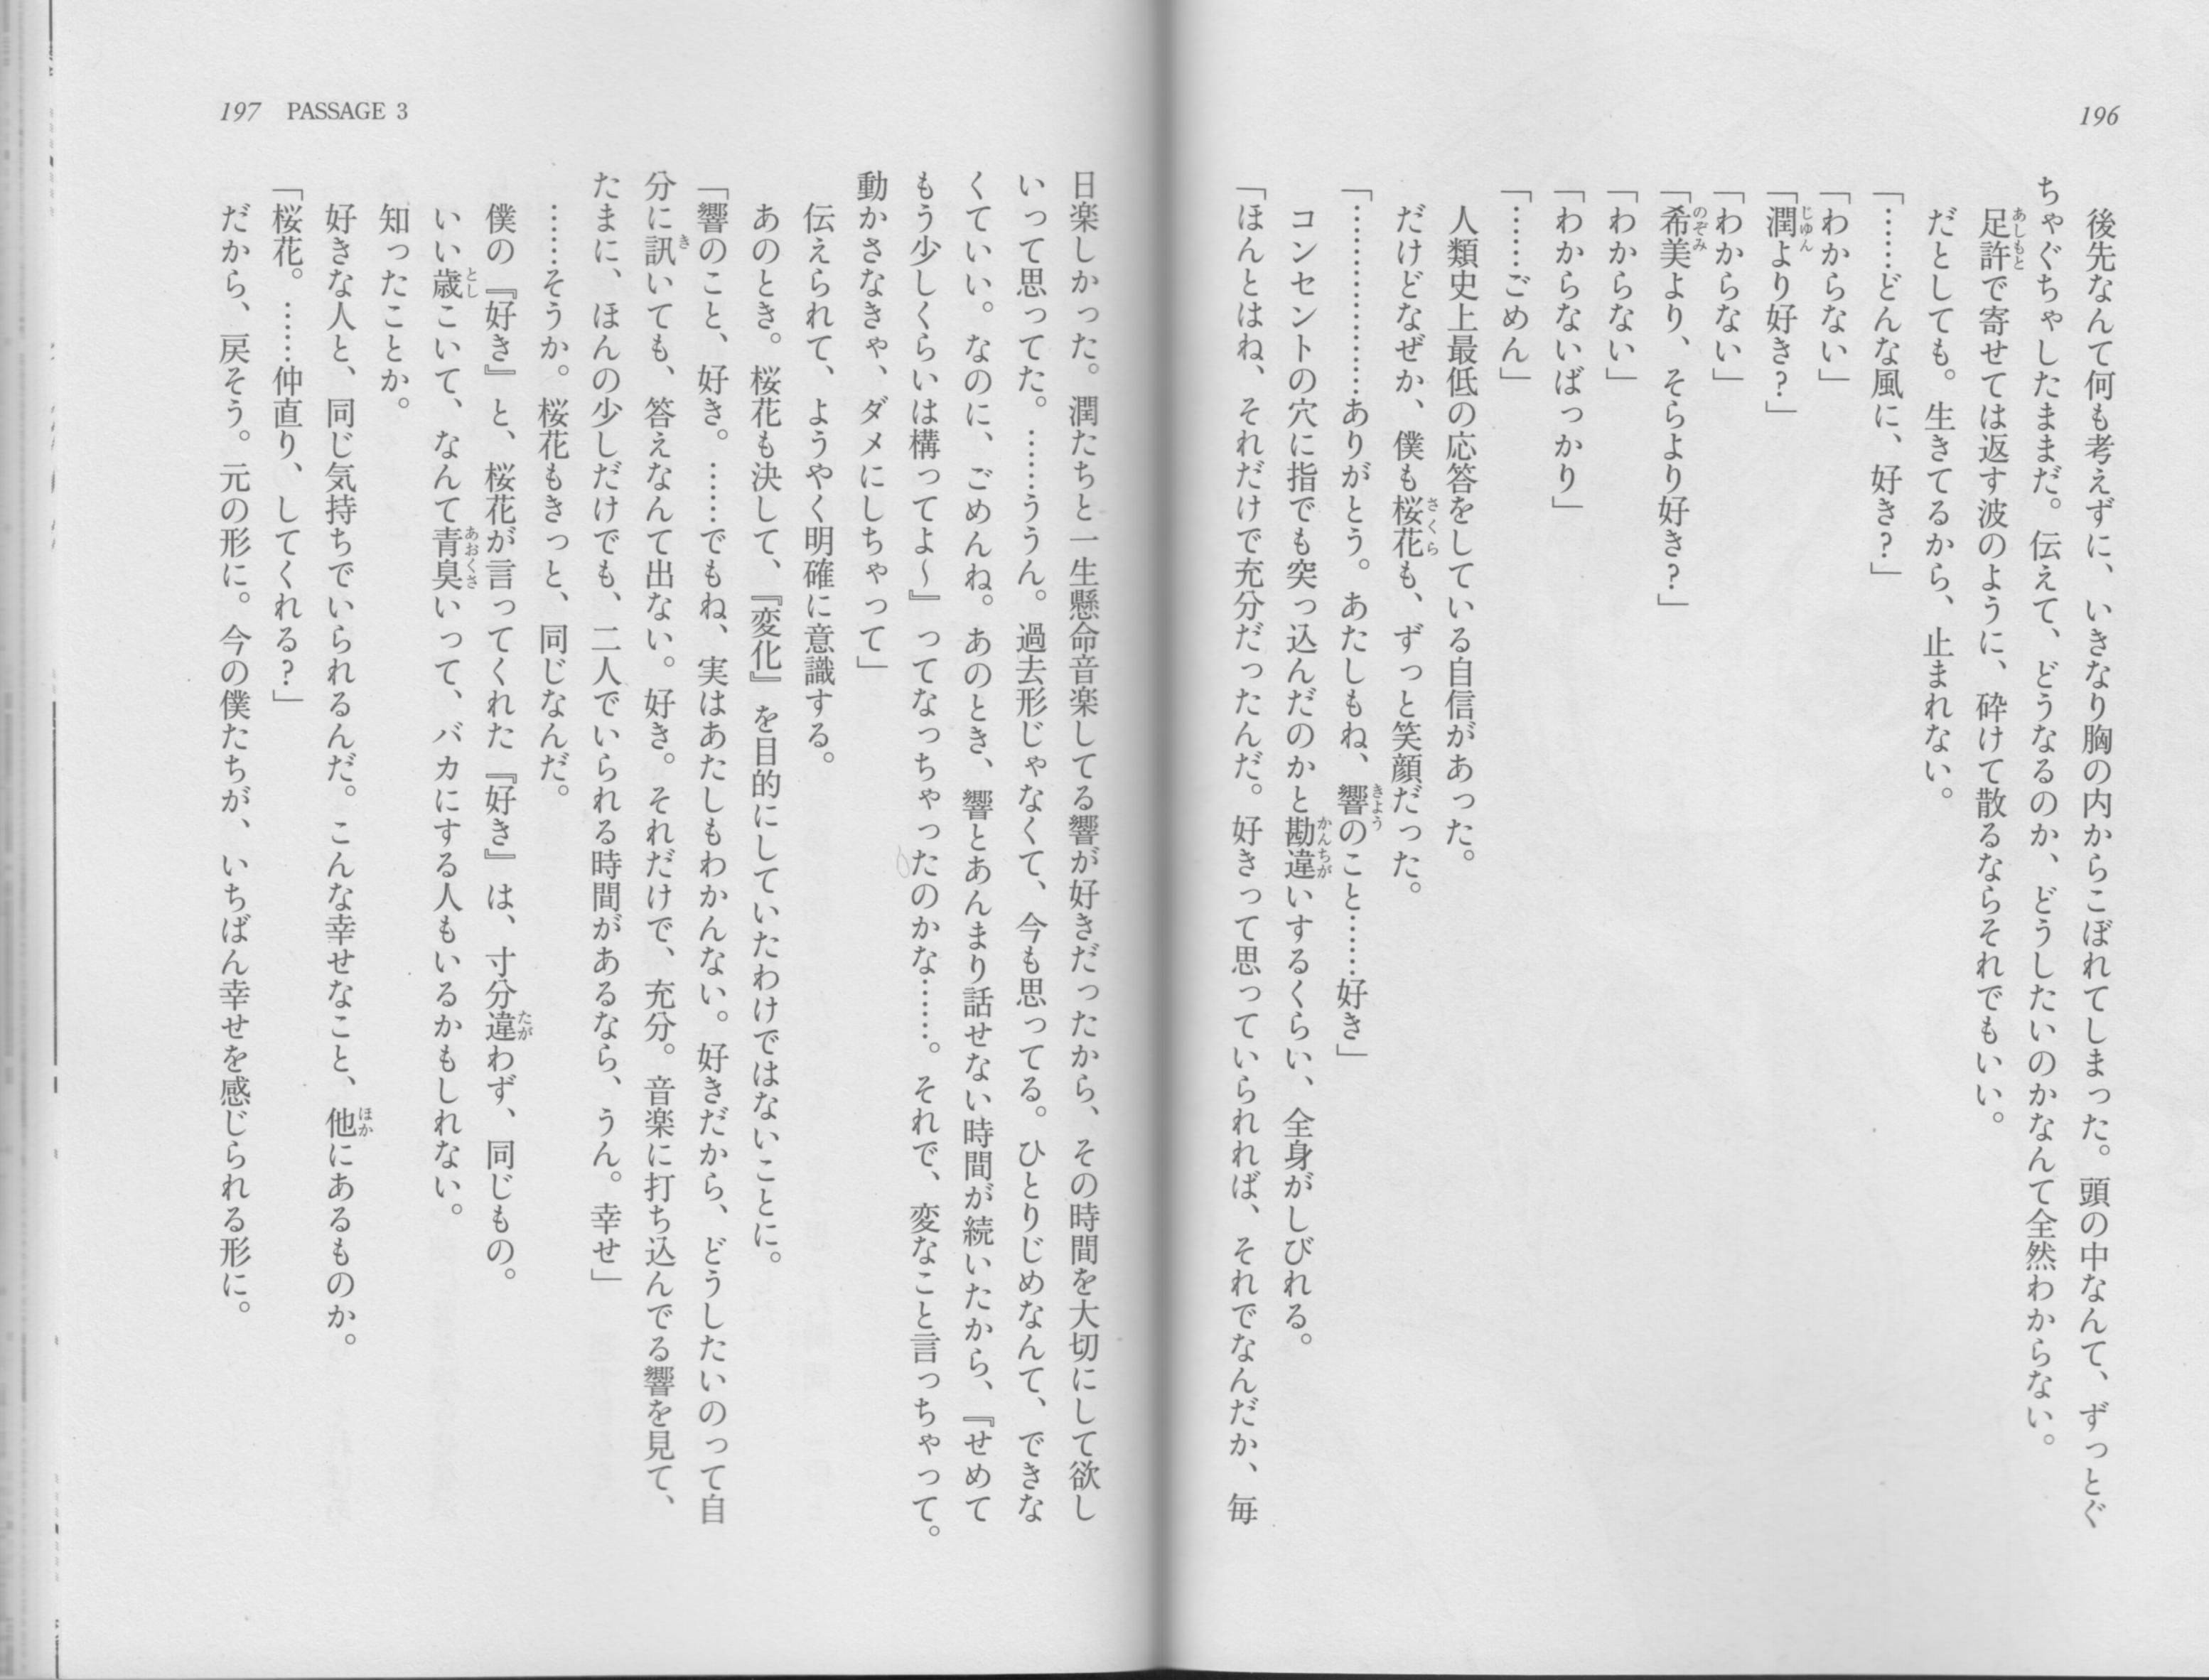 196
後先なんて何も考えずに、いきなり胸の内からこぼれてしまった。頭の中なんて、ずっとぐ
ちゃぐちゃしたままだ。伝えて、どうなるのか、どうしたいのかなんて全然わからない。
足許で寄せては返す波のように、砕けて散るならそれでもいい。
だとしても。生きてるから、止まれない。
「……どんな風に、好き?」
「わからない」
「潤より好き?」
「わからない」
「希美より、そらより好き?」
「わからない」
「わからないばっかり」
「……ごめん」
人類史上最低の応答をしている自信があった。
だけどなぜか、僕も桜花も、ずっと笑顔だった。
「………………ありがとう。あたしもね、響のこと……好き」
コンセントの穴に指でも突っ込んだのかと勘違いするくらい、全身がしびれる。
「ほんとはね、それだけで充分だったんだ。好きって思っていられれば、それでなんだか、毎
197 PASSAGE 3
日楽しかった。潤たちと一生懸命音楽してる響が好きだったから、その時間を大切にして欲し
いって思ってた。……ううん。過去形じゃなくて、今も思ってる。ひとりじめなんて、できな
くていい。なのに、ごめんね。あのとき、響とあんまり話せない時間が続いたから、『せめて
もう少しくらいは構ってよ〜』ってなっちゃったのかな……。それで、変なこと言っちゃって。
動かさなきゃ、ダメにしちゃって」
伝えられて、ようやく明確に意識する。
あのとき。桜花も決して、『変化』を目的にしていたわけではないことに。
「響のこと、好き。……でもね、実はあたしもわかんない。好きだから、どうしたいのって自
分に訊いても、答えなんて出ない。好き。それだけで、充分。音楽に打ち込んでる響を見て、
たまに、ほんの少しだけでも、二人でいられる時間があるなら、うん。幸せ」
……そうか。桜花もきっと、同じなんだ。
僕の『好き』と、桜花が言ってくれた『好き』は、寸分違わず、同じもの。
いい歳こいて、なんて青臭いって、バカにする人もいるかもしれない。
知ったことか。
好きな人と、同じ気持ちでいられるんだ。こんな幸せなこと、他にあるものか。
「桜花。……仲直り、してくれる?」
だから、戻そう。元の形に。今の僕たちが、いちばん幸せを感じられる形に。